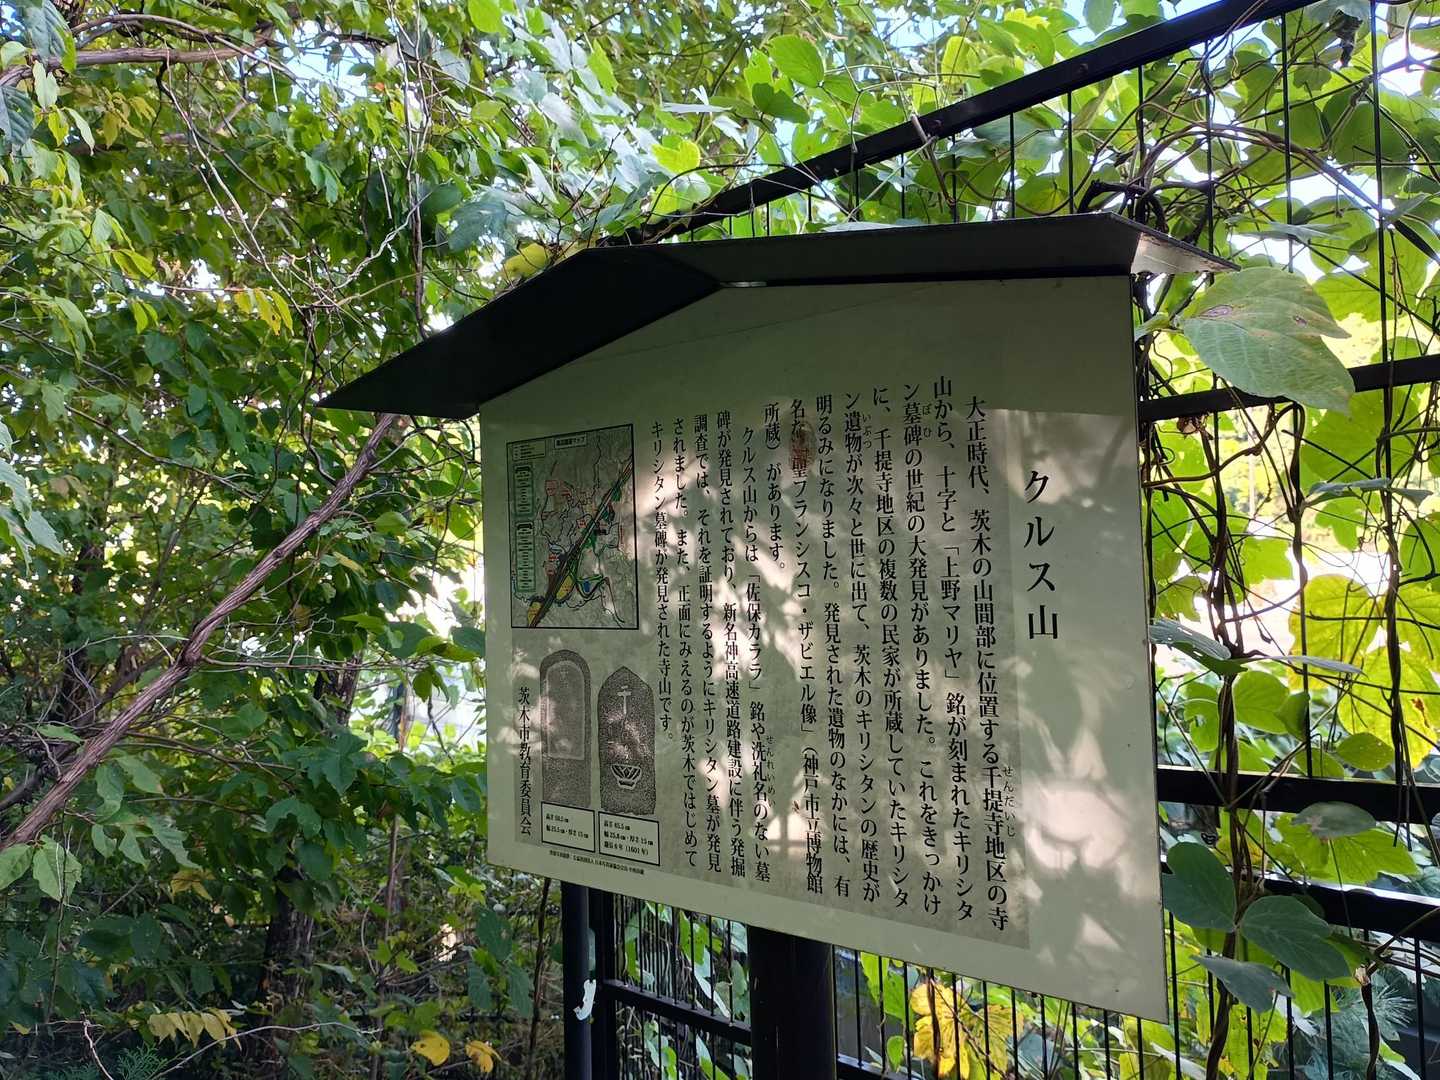 クルス山
大正時代、茨木の山間部に位置する千提寺地区の寺
せんだいじ
山から、十字と「上野マリヤ」銘が刻まれたキリシタ
ン墓碑の世紀の大発見がありました。これをきっかけ
ぼひ
に、千提寺地区の複数の民家が所蔵していたキリシタ
ン遺物が次々と世に出て、茨木のキリシタンの歴史が
いぶつ
明るみになりました。発見された遺物のなかには、有
名な「聖フランシスコ・ザビエル像」(神戸市立博物館
所蔵)があります。
クルス山からは「佐保カララ」銘や洗礼名のない墓
せんれいめい
碑が発見されており、新名神高速道路建設に伴う発掘
調査では、それを証明するようにキリシタン墓が発見
されました。また、正面にみえるのが茨木ではじめて
キリシタン墓碑が発見された寺山です。
茨木市教育委員会